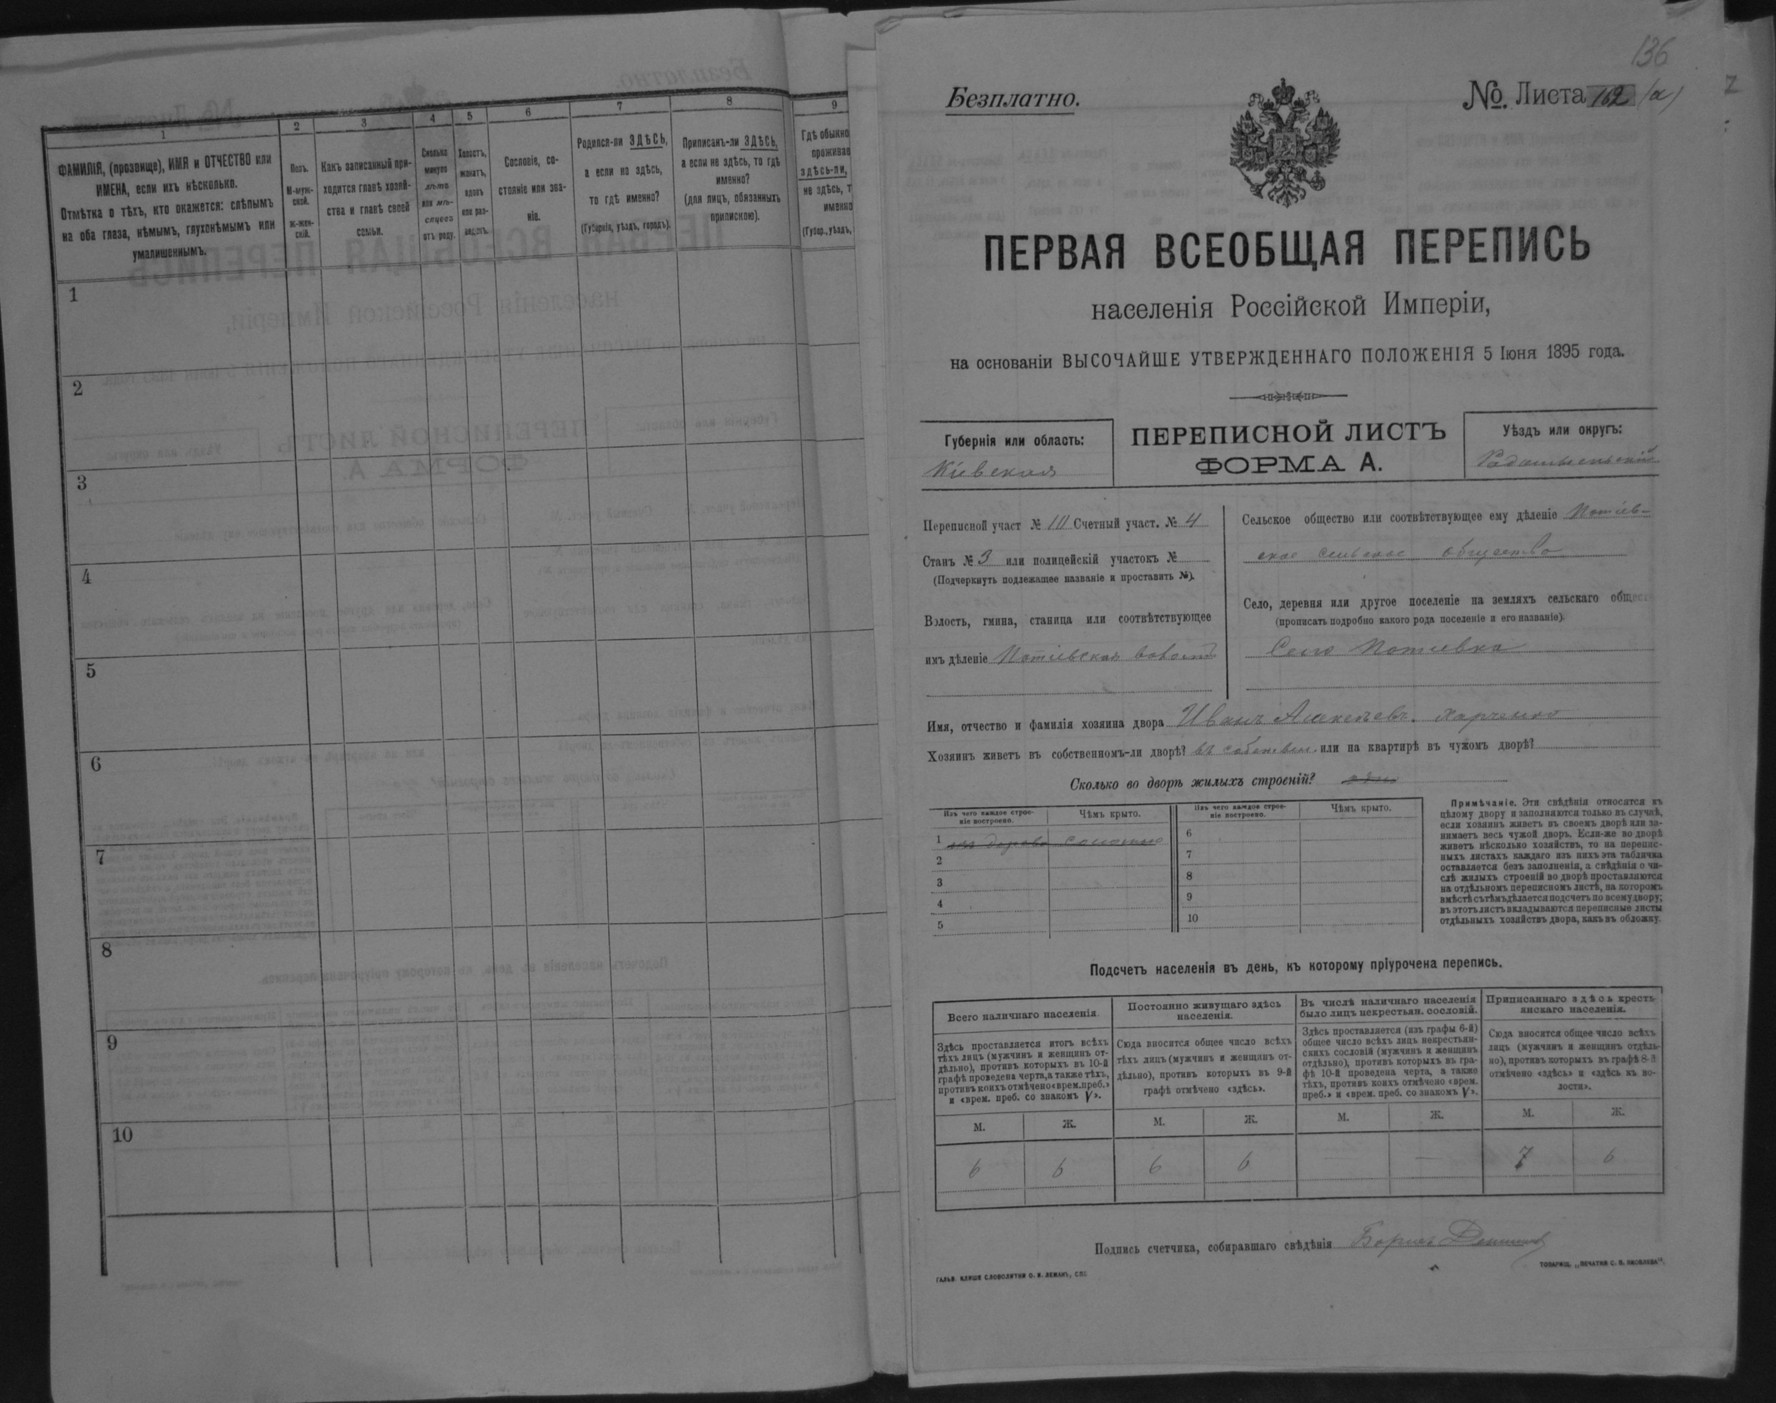 1
2
3
4
5
6
7
8
9
ФАМИЛІЯ, (прозвище), ИМЯ и ОТЧЕСТВО или
ИМЕНА, если ихъ нѣсколько.
Отмѣтка о тѣхъ, кто окажется: слѣпымъ
на оба глаза, нѣмымъ, глухонѣмымъ или
умалишеннымъ.
Полъ.
М-муж-
ской.
Ж-жен-
скій.
Какъ записанный при-
ходится главѣ хозяй-
ства и главѣ своей
семьи.
Сколько
минуло
лѣтъ
или мѣ-
сяцевъ
отъ роду.
Холостъ,
женатъ,
вдовъ
или раз-
веденъ.
Сословіе, со-
стояніе или зва-
ніе.
Родился-ли ЗДѢСЬ,
а если не здѣсь,
то гдѣ именно?
(Губернія, уѣздъ, городъ).
Приписанъ-ли ЗДѢСЬ,
а если не здѣсь, то гдѣ
именно?
(для лицъ, обязанныхъ
припискою).
Гдѣ обыкно
проживае
здѣсь-ли,
не здѣсь, т
именно
(Губер., уѣздъ,
1
2
3
4
5
6
7
8
9
10
136
Безплатно.
№ Листа 162 (а)
ПЕРВАЯ ВСЕОБЩАЯ ПЕРЕПИСЬ
населенія Россійской Имперіи,
на основаніи ВЫСОЧАЙШЕ УТВЕРЖДЕННАГО ПОЛОЖЕНІЯ 5 Іюня 1895 года.
Губернія или область:
Кіевская
ПЕРЕПИСНОЙ ЛИСТЪ
ФОРМА А.
Уѣздъ или округъ:
Радомысльскій
Переписной участ № 10 Счетный участ. № 4
Станъ № 3 или полицейскій участокъ №
(Подчеркнуть подлежащее названіе и проставить №).
Волость, гмина, станица или соотвѣтствующее
имъ дѣленіе Потіевская волость
Сельское общество или соотвѣтствующее ему дѣленіе Потіев-
ское сельское общество
Село, деревня или другое поселеніе на земляхъ сельскаго общест
(прописать подробно какого рода поселеніе и его названіе).
Село Потіевка
Имя, отчество и фамилія хозяина двора Иванъ Харченко
Хозяинъ живетъ въ собственномъ-ли дворѣ? въ собствен. или на квартирѣ въ чужомъ дворѣ?
Сколько во дворѣ жилыхъ строеній?
Изъ чего каждое строе-
ніе построено.
Чѣмъ крыто.
Изъ чего каждое строе-
ніе построено.
Чѣмъ крыто.
1 изъ дерева соломою
2
3
4
5
6
7
8
9
10
Примѣчаніе. Эти свѣдѣнія относятся къ
цѣлому двору и заполняются только въ случаѣ,
если хозяинъ живетъ въ своемъ дворѣ или за-
нимаетъ весь чужой дворъ. Если-же во дворѣ
живетъ нѣсколько хозяйствъ, то на перепис-
ныхъ листахъ каждаго изъ нихъ эта табличка
оставляется безъ заполненія, а свѣдѣнія о чи-
слѣ жилыхъ строеній во дворѣ проставляются
на отдѣльномъ переписномъ листѣ, на которомъ
вмѣстѣ съ тѣмъ дѣлается подсчетъ по всему двору;
въ этотъ листъ вкладываются переписные листы
отдѣльныхъ хозяйствъ двора, какъ въ обложку.
Подсчетъ населенія въ день, къ которому пріурочена перепись.
Всего наличнаго населенія.
Здѣсь проставляется итогъ всѣхъ
тѣхъ лицъ (мужчинъ и женщинъ от-
дѣльно), противъ которыхъ въ 10-й
графѣ проведена черта, а также тѣхъ,
противъ коихъ отмѣчено «врем. преб.»
и «врем. преб. со знакомъ V».
Постоянно живущаго здѣсь
населенія.
Сюда вносится общее число всѣхъ
тѣхъ лицъ (мужчинъ и женщинъ от-
дѣльно), противъ которыхъ въ 9-й
графѣ отмѣчено «здѣсь».
Въ числѣ наличнаго населенія
было лицъ некрестьян. сословій.
Здѣсь проставляется (изъ графы 6-й)
общее число всѣхъ лицъ некрестьян-
скихъ сословій (мужчинъ и женщинъ
отдѣльно), противъ которыхъ въ гра-
фѣ 10-й проведена черта, а также
тѣхъ, противъ коихъ отмѣчено «врем.
преб.» и «врем. преб. со знакомъ V».
Приписаннаго здѣсь кресть-
янскаго населенія.
Сюда вносится общее число всѣхъ
лицъ (мужчинъ и женщинъ отдѣль-
но), противъ которыхъ въ графѣ 8-й
отмѣчено «здѣсь» и «здѣсь въ во-
лости».
М. Ж. М. Ж. М. Ж. М. Ж.
6 6 6 6 — — 7 6
Подпись счетчика, собиравшаго свѣдѣнія Борисъ
ГАЛЬВ. КЛИШЕ СЛОВОЛИТНИ О. И. ЛЕМАНЪ, СПБ
ТОВАРИЩ. „ПЕЧАТНЯ С. П. ЯКОВЛЕВА“.